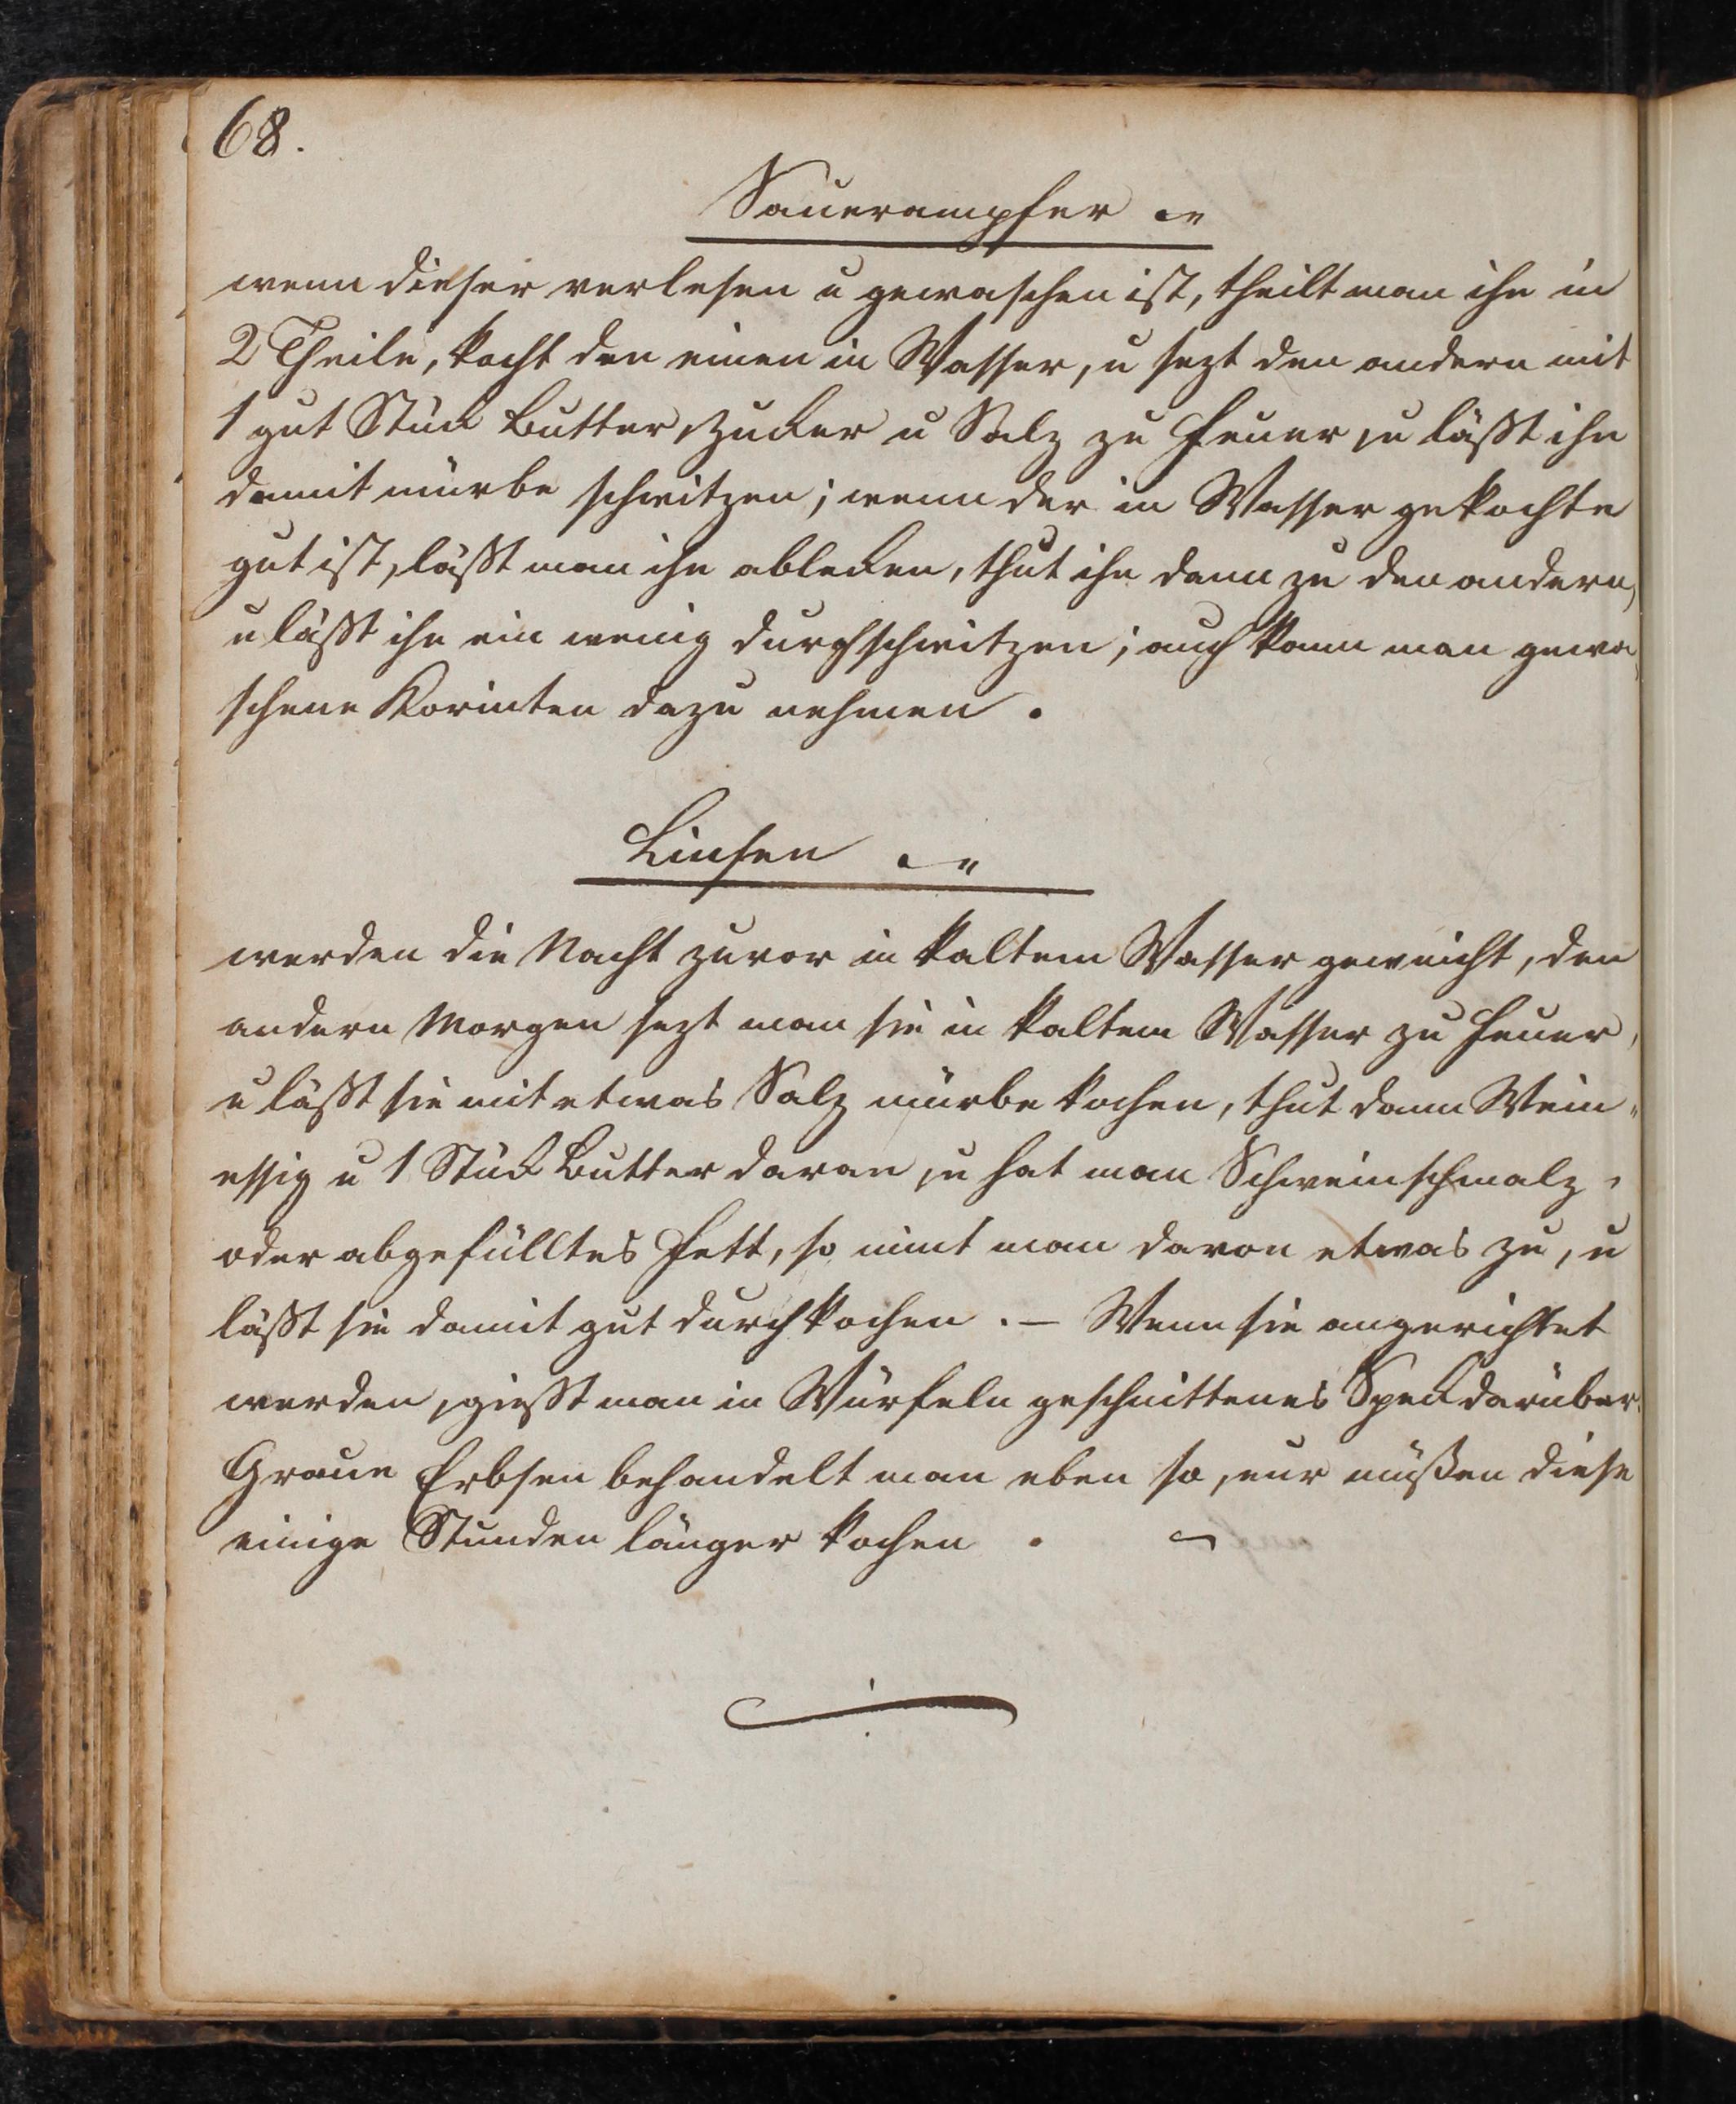 68.
Sauerampfer
wenn dieser verlesen u gewaschen ist, theilt man ihn in
2 Theile, kocht den einen in Wasser, u sezt den andern mit
1 gut Stück Butter, Zucker u Salz zu Feuer, u läßt ihn
damit mürbe schwitzen; wenn der in Wasser gekochte
gut ist, läßt man ihn ablecken, thut ihn dann zu den andern,
u läßt ihn ein wenig durchschwitzen; auch kann man gewa-
schene Korinten dazu nehmen.
Linsen
werden die Nacht zuvor in kaltem Wasser geweicht, den
andern Morgen sezt man sie in kaltem Wasser zu Feuer,
u läßt sie mit etwas Salz mürbe kochen, thut dann Wein-
essig u 1 Stück Butter daran, u hat man Schweinschmalz,
oder abgefülltes Fett, so nimt man davon etwas zu, u
läßt sie damit gut durchkochen. — Wenn sie angerichtet
werden, gießt man in Würfeln geschnittenes Speck darüber.
Graue Erbsen behandelt man eben so, nur müßen diese
einige Stunden länger kochen.